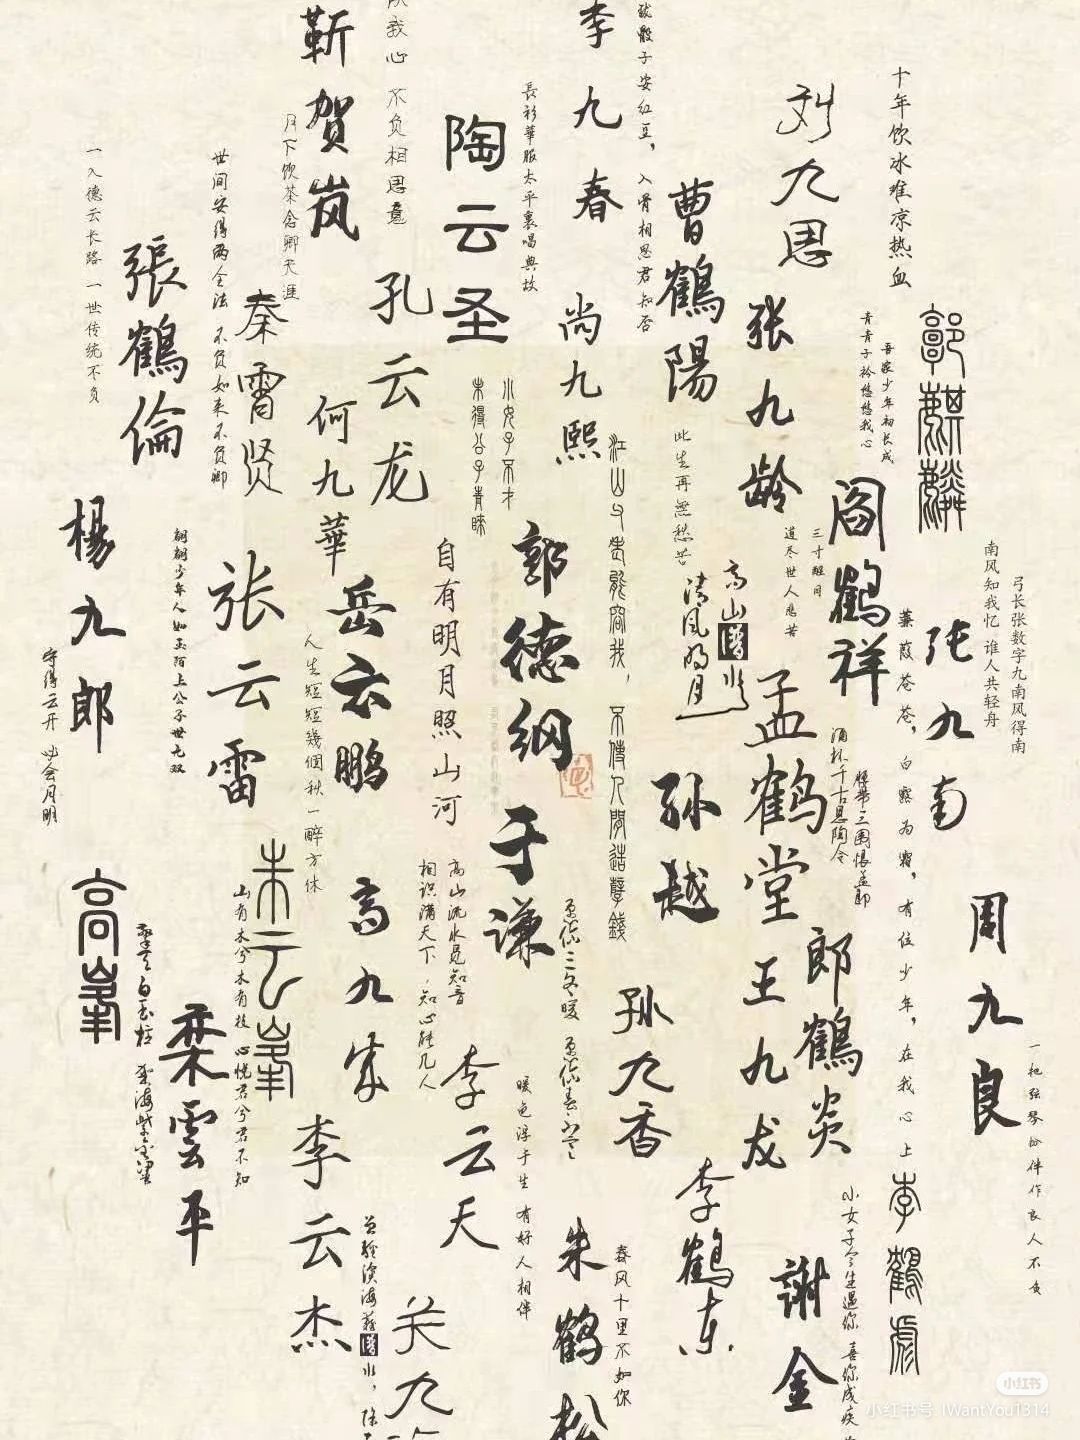 十年饮冰难凉热血
刘九思
李九春
骰子安红豆，入骨相思君知否
我心不负相思意
靳贺岚
長衫華服太平裏唱典故
陶云圣
月下饮茶念卿天涯
世间安得两全法 不负如来不负卿
一入德云长路 一世传统不负
張鶴倫
秦霄贤
孔云龙
何九華
尚九熙
曹鶴陽
张九龄
吾家少年初长成
青青子衿悠悠我心
郭麒麟
阎鶴祥
三寸醒目
道尽世人悲苦
此生再無愁苦
小女子不才
未得公子青睐
江山
不傳人間造孽錢
高山
清风明月
南风知我忆 谁人共轻舟
弓长张数字九南风得南
张九南
蒹葭苍苍，白露为霜，有位少年，在我心上
孟鹤堂
满杯千古思陶令
腰带三围恨孟郎
郭德纲
于谦
自有明月照山河
岳云鹏
人生短短幾個秋一醉方休
张云雷
翩翩少年人如玉陌上公子世无双
楊九郎
守得云开必会月明
孙越
高九成
高山流水觅知音
相识满天下，知心能几人
朱云峯
山有木兮木有枝 心悦君兮君不知
高峯
擎天白玉柱 架海紫金梁
栾雲平
李云杰
李云天
暖色浮于生 有好人相伴
孙九香
王九龙
郎鶴炎
周九良
一把弦琴份伴作良人不负
李鹤东
李鶴彪
小女子今生遇你 喜你成疾
謝金
春风十里不如你
朱鹤松
关九
小红书
小红书号 IWantYou1314